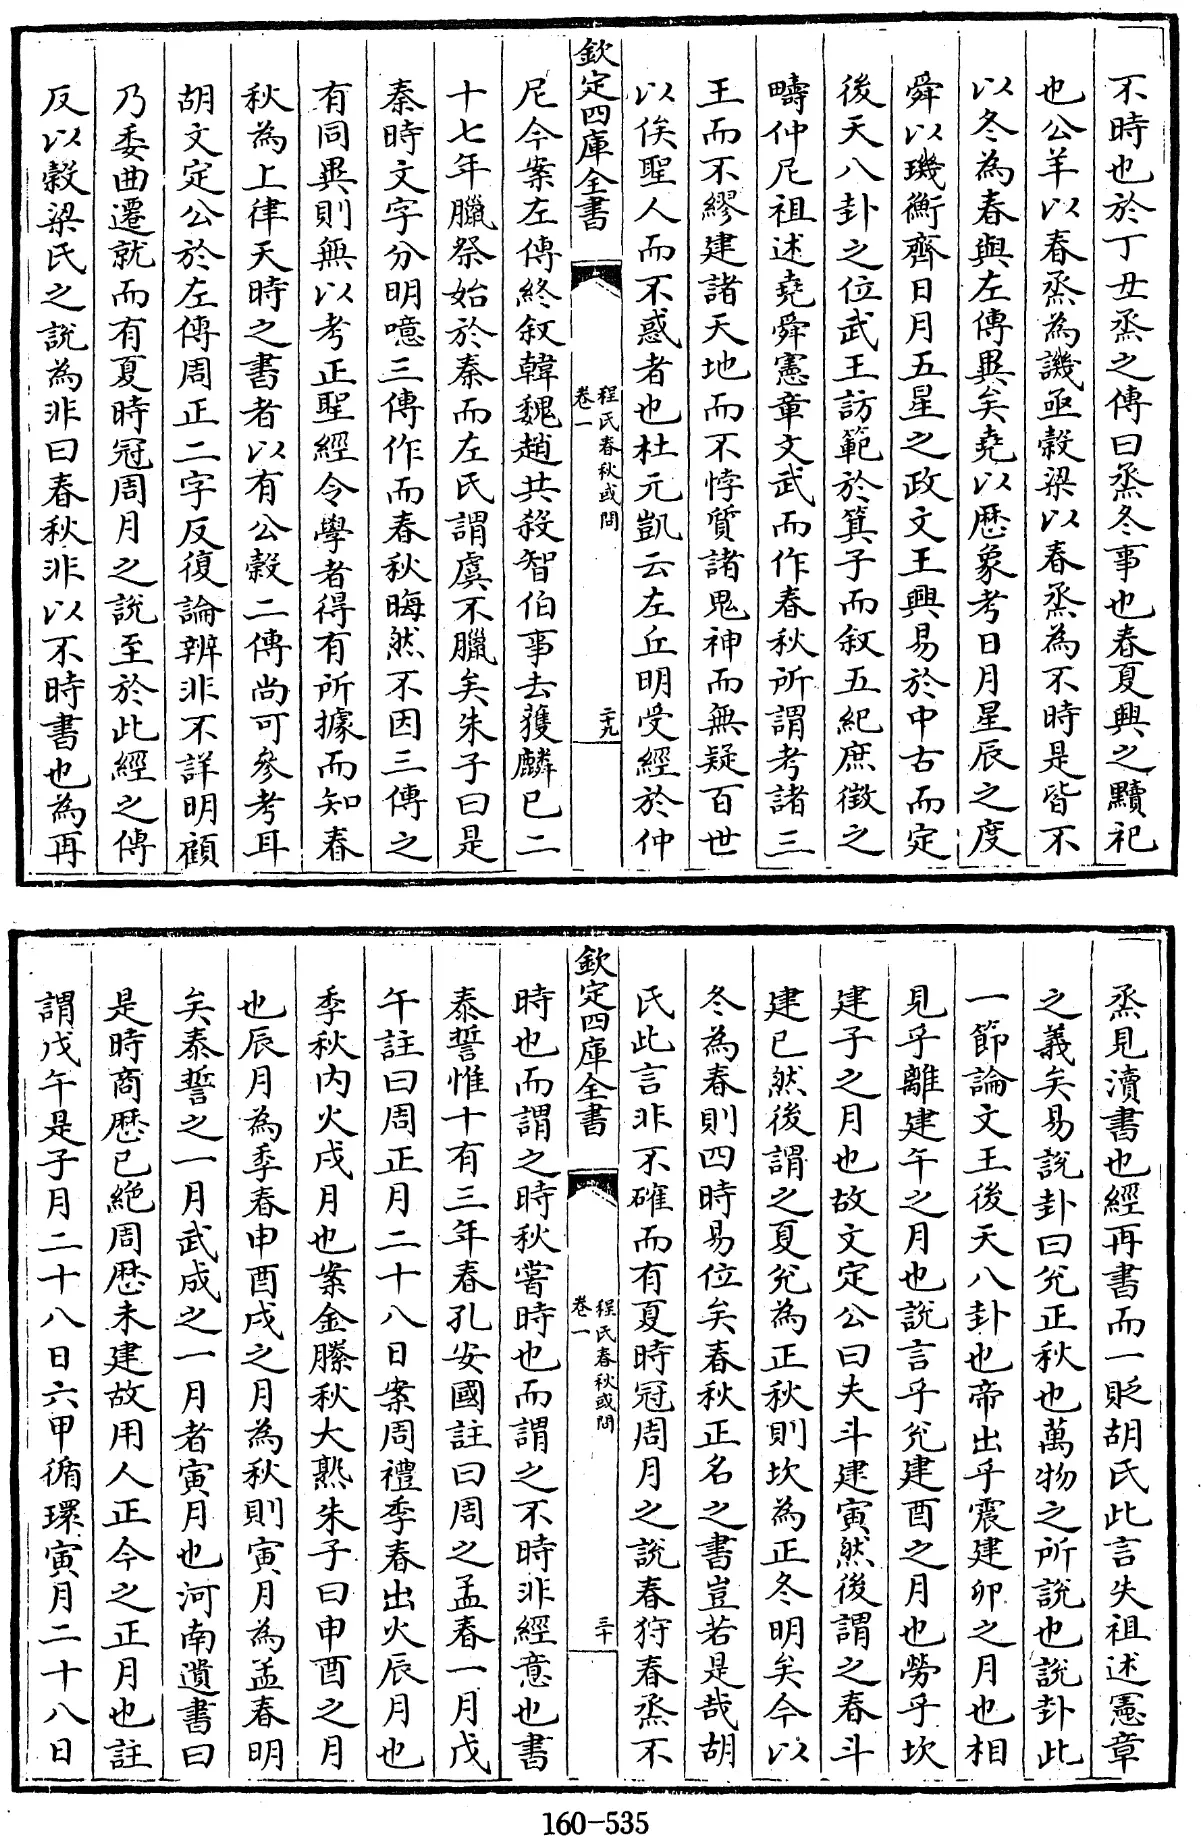 不時也於丁丑烝之傳曰烝冬事也春夏興之黷祀
也公羊以春烝為譏亟穀梁以春烝為不時是皆不
以冬為春與左傳異矣堯以歴象考日月星辰之度
舜以璣衡齊日月五星之政文王興易於中古而定
後天八卦之位武王訪範於箕子而叙五紀庶徴之
疇仲尼祖述堯舜憲章文武而作春秋所謂考諸三
王而不繆建諸天地而不悖質諸鬼神而無疑百世
以俟聖人而不惑者也杜元凱云左丘明受經於仲
欽定四庫全書
程氏春秋或問
卷一
二十九
尼今案左傳終叙韓魏趙共殺智伯事去獲麟已二
十七年臘祭始於秦而左氏謂虞不臘矣朱子曰是
秦時文字分明噫三傳作而春秋晦然不因三傳之
有同異則無以考正聖經令學者得有所據而知春
秋為上律天時之書者以有公穀二傳尚可參考耳
胡文定公於左傳周正二字反復論辨非不詳明顧
乃委曲遷就而有夏時冠周月之說至於此經之傳
反以穀梁氏之說為非曰春秋非以不時書也為再
烝見瀆書也經再書而一貶胡氏此言失祖述憲章
之義矣易說卦曰兊正秋也萬物之所說也說卦此
一節論文王後天八卦也帝出乎震建卯之月也相
見乎離建午之月也說言乎兊建酉之月也勞乎坎
建子之月也故文定公曰夫斗建寅然後謂之春斗
建巳然後謂之夏兊為正秋則坎為正冬明矣今以
冬為春則四時易位矣春秋正名之書豈若是哉胡
氏此言非不確而有夏時冠周月之說春狩春烝不
欽定四庫全書
程氏春秋或問
卷一
三十
時也而謂之時秋嘗時也而謂之不時非經意也書
泰誓惟十有三年春孔安國註曰周之孟春一月戊
午註曰周正月二十八日案周禮季春出火辰月也
季秋内火戌月也案金縢秋大熟朱子曰申酉之月
也辰月為季春申酉戌之月為秋則寅月為孟春明
矣泰誓之一月武成之一月者寅月也河南遺書曰
是時商歴已絶周歴未建故用人正今之正月也註
謂戊午是子月二十八日六甲循環寅月二十八日
160-535